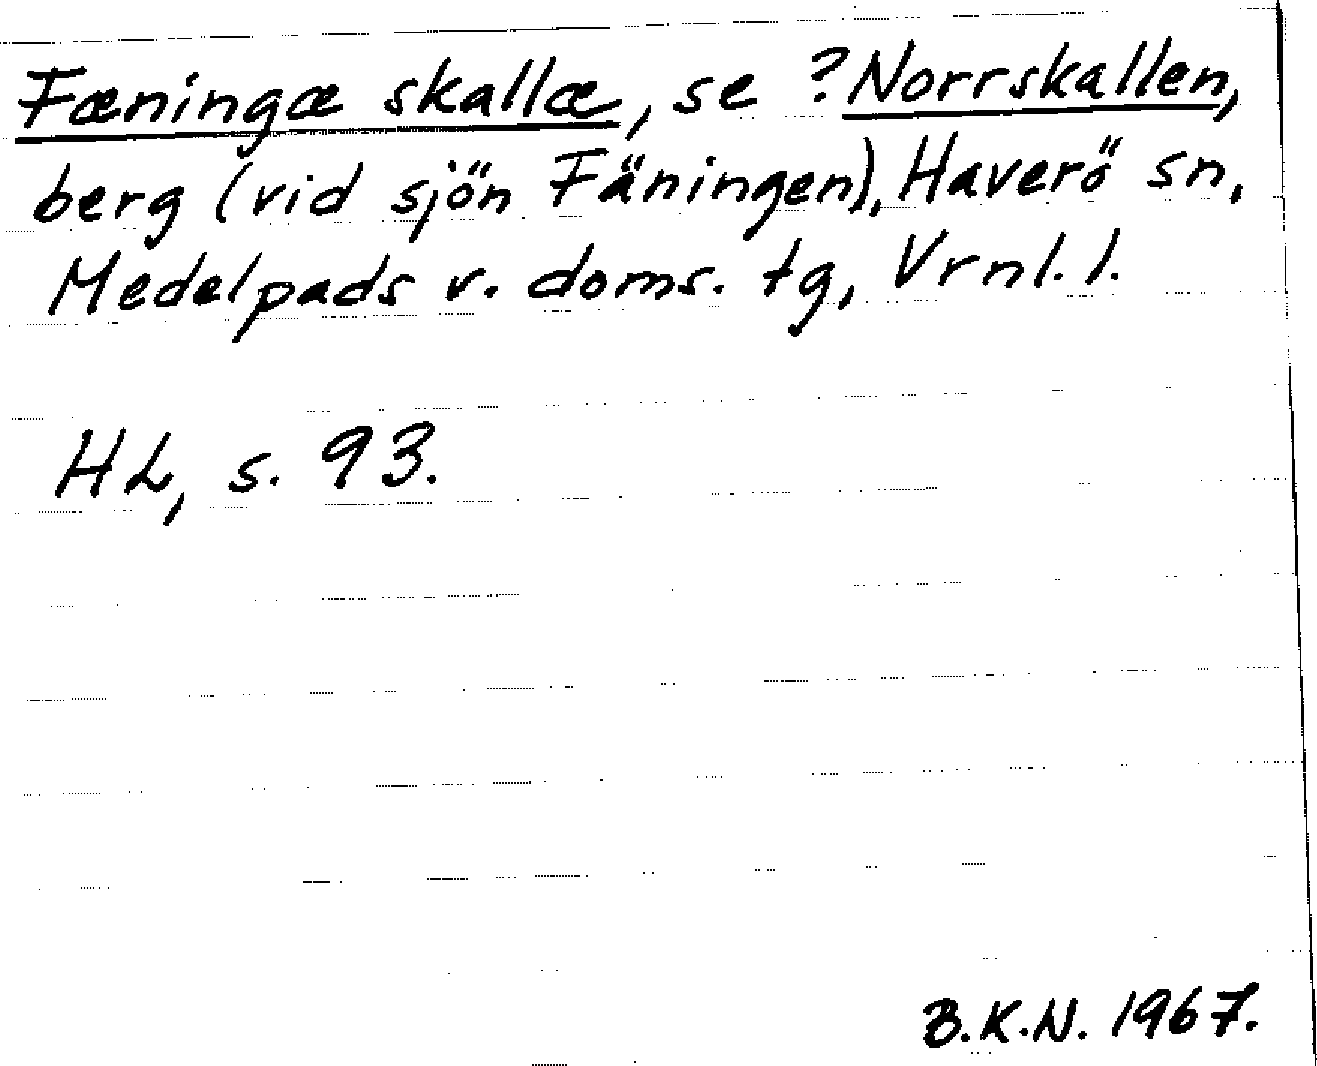 Fæningæ skallæ, se ? Norrskallen,
berg (vid sjön Fäningen), Haverö sn,
Medelpads v. doms. tg, Vrnl. l.
HL, s. 93.
B.K.N. 1967.